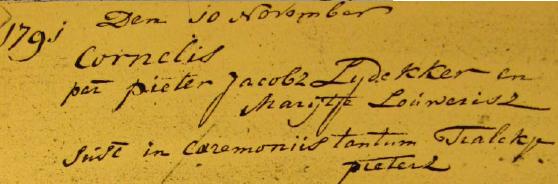 1791 Den 10 November
Cornelis
pat pieter Jacobz Lydekker en
Marijtje Louwerisz
Susc in caremoniis tantum Tialckje
pieters